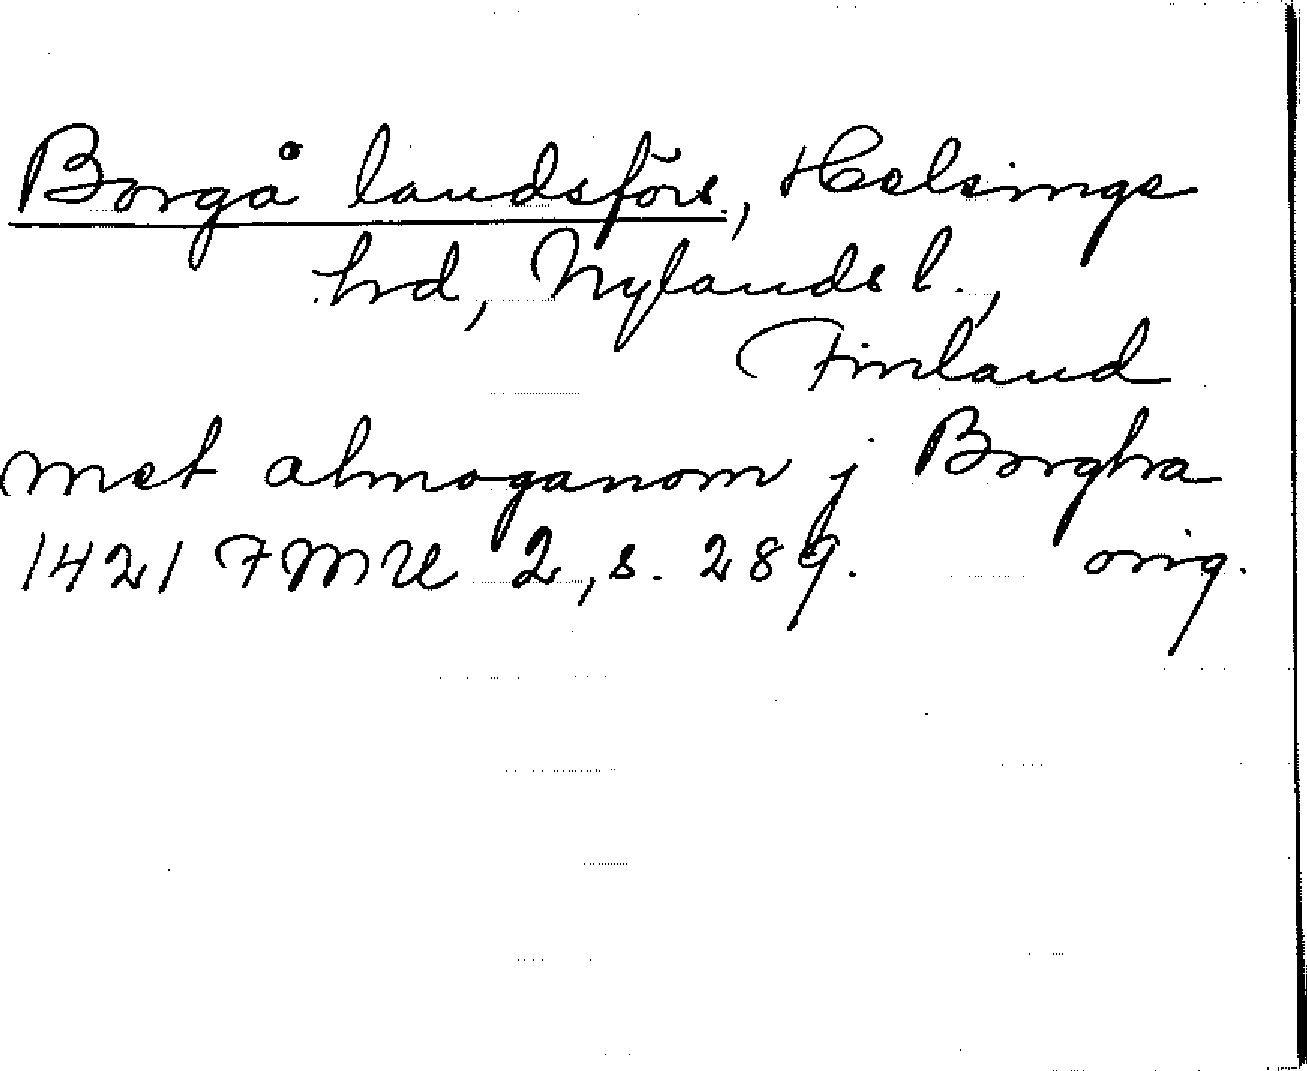 Borgå landsförs., Helsinge
hrd, Nylands l.,
Finland
met almoganom j Borgha
1421 FMU 2, s. 289. orig.